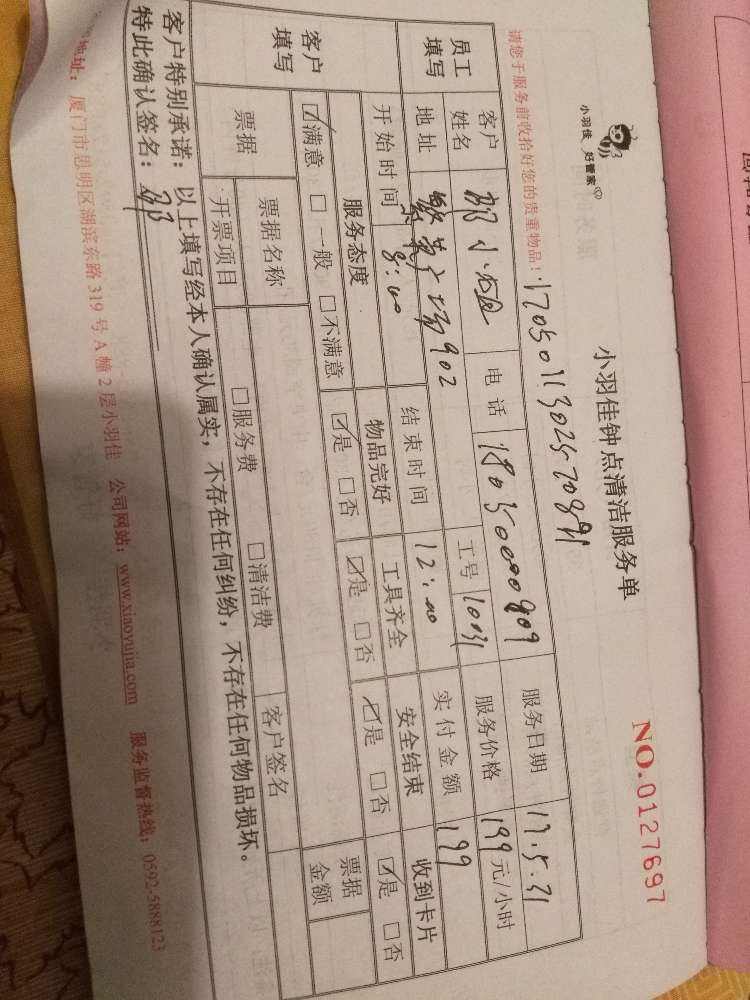 小羽佳 好管家
小羽佳钟点清洁服务单
NO.0127697
请您于服务前收拾好您的贵重物品!
员工填写
客户姓名 小 电话 18050000909 服务日期 17.5.31
地址 902 工号 服务价格 199 元/小时
开始时间 8:00 结束时间 12:00 实付金额 199
客户填写
服务态度 物品完好 工具齐全 安全结束 收到卡片
☑满意 □一般 □不满意 ☑是 □否 ☑是 □否 ☑是 □否 ☑是 □否
票据 票据名称 □服务费 □清洁费 客户签名 票据金额
开票项目
客户特别承诺:以上填写经本人确认属实,不存在任何纠纷,不存在任何物品损坏。
特此确认签名:
地址:厦门市思明区湖滨东路 319 号 A 幢 2 层小羽佳 公司网站:www.xiaoyujia.com 服务监督热线:0592-5888123